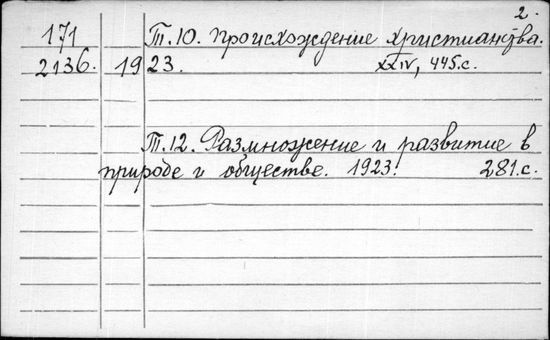 2.
171 Т.10. Происхождение христианства.
2136. 1923. XXIV, 445.с.
Т.12. Размножение и развитие в
природе и обществе. 1923. 281.с.